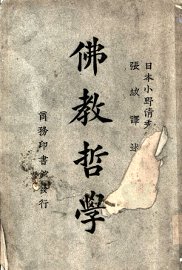 日本小野清秀
張紱譯述
佛教哲學
商務印書館發行